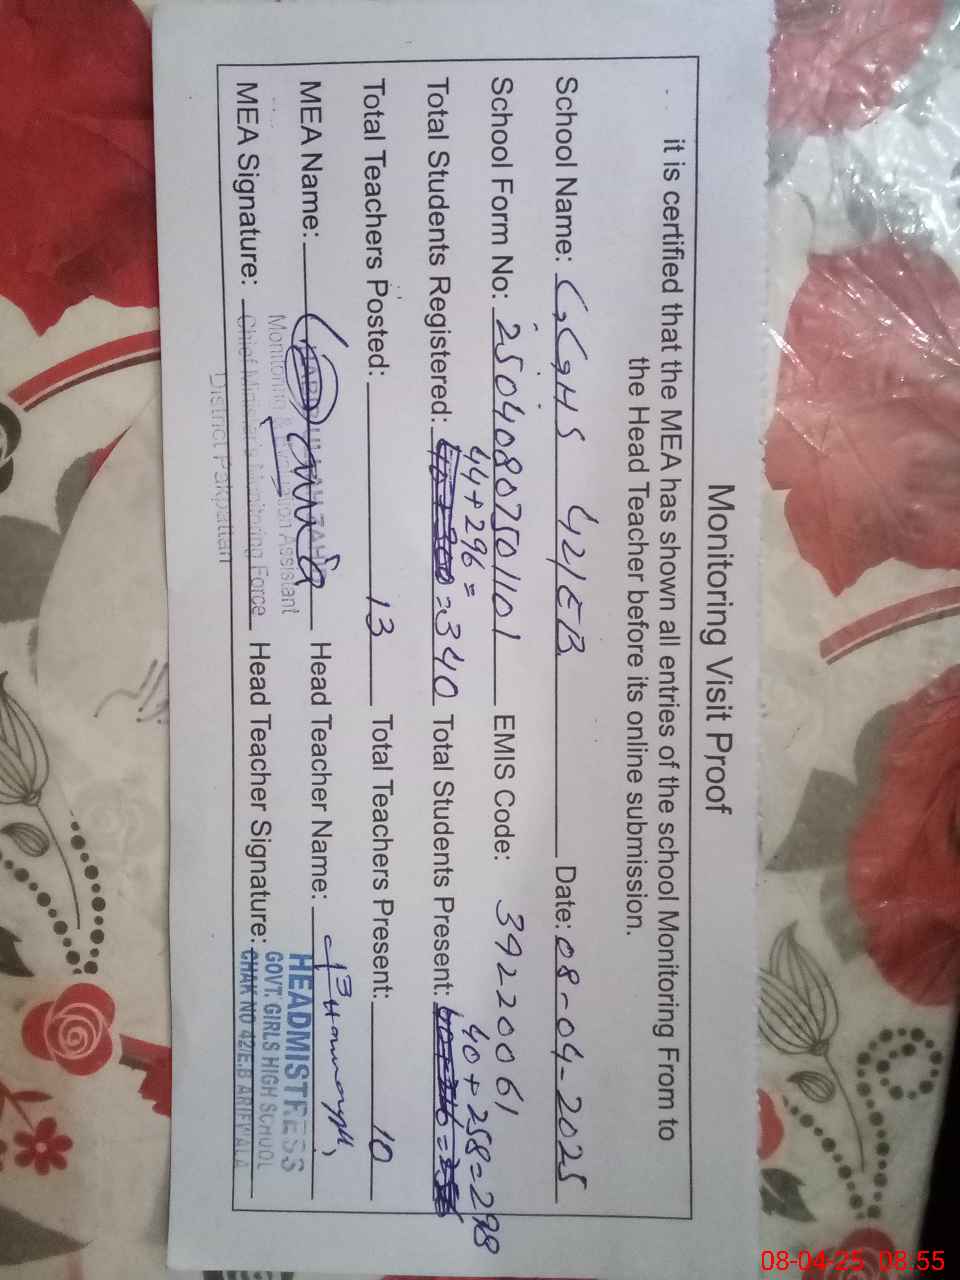 Monitoring Visit Proof
it is certified that the MEA has shown all entries of the school Monitoring From to
the Head Teacher before its online submission.
School Name: GGHS 42/EB Date: 08-04-2025
School Form No: 25040807501101 EMIS Code: 39220061
44+296= 40+258=298
Total Students Registered: =340 Total Students Present:
Total Teachers Posted: 13 Total Teachers Present: 10
MEA Name: Head Teacher Name:
Monitoring & Evaluation Assistant HEADMISTRESS
MEA Signature: Chief Minister's Monitoring Force Head Teacher Signature: GOVT. GIRLS HIGH SCHOOL
District Pakpattan CHAK NO 42/E.B ARIFWALA
08-04-25 08:55